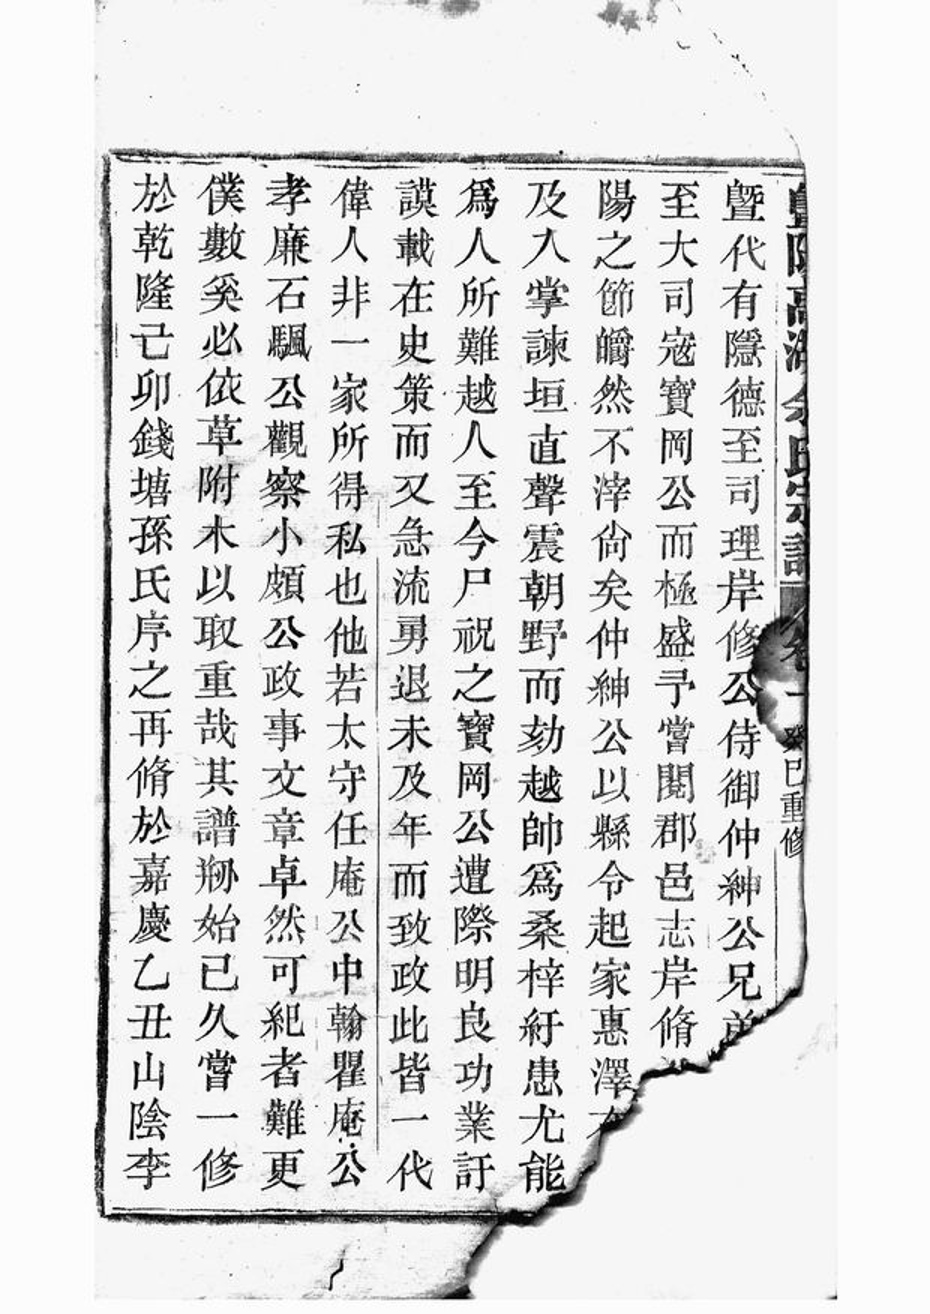 暨陽高湖余氏宗譜 卷一 癸巳重修
暨代有隱德至司理岸修公侍御仲紳公兄弟
至大司寇寶岡公而極盛予嘗閱郡邑志岸脩
陽之節皭然不滓尙矣仲紳公以縣令起家惠澤
及入掌諫垣直聲震朝野而劾越帥爲桑梓紓患尤能
爲人所難越人至今尸祝之寶岡公遭際明良功業訏
謨載在史策而又急流勇退未及年而致政此皆一代
偉人非一家所得私也他若太守任庵公中翰瞿庵公
孝廉石颿公觀察小頗公政事文章卓然可紀者難更
僕數奚必依草附木以取重哉其譜剏始已久嘗一修
於乾隆己卯錢塘孫氏序之再脩於嘉慶乙丑山陰李